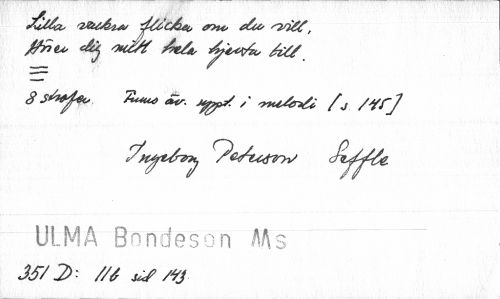 Lilla vackra flicka om du vill,
Hörer dig mitt hela hjerta till.
8 strofer. Finns äv. uppt. i melodi [s 145]
Ingeborg Peterson Seffle
ULMA Bondeson Ms
351 D: 11b sid 143